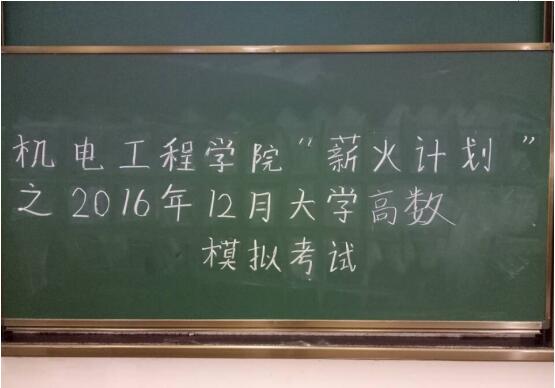 机电工程学院“薪火计划”
之2016年12月大学高数
模拟考试